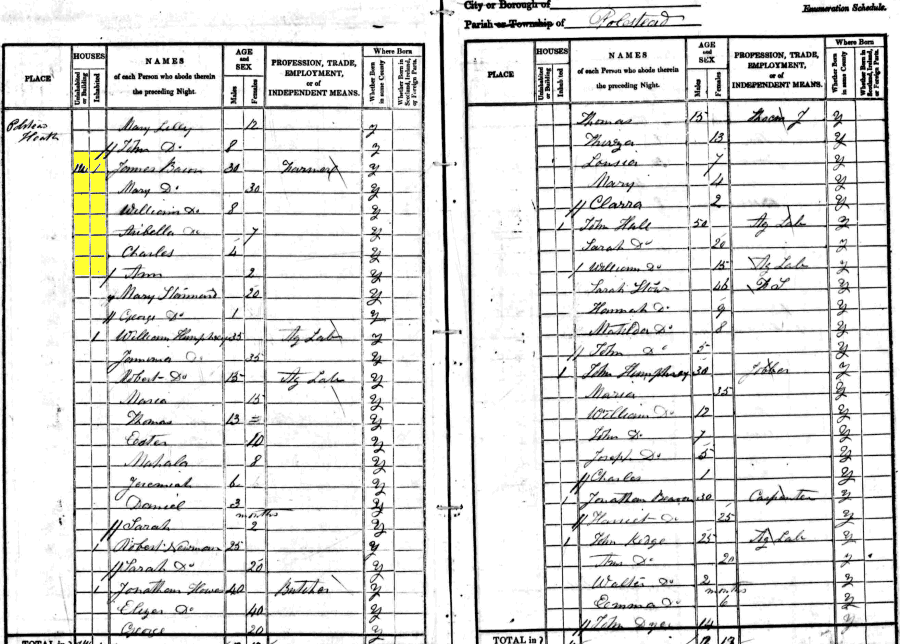 City or Borough of
Parish or Township of Polstead
Enumeration Schedule.
PLACE
HOUSES
Uninhabited or Building
Inhabited
NAMES
of each Person who abode therein
the preceding Night.
AGE and SEX
Males
Females
PROFESSION, TRADE,
EMPLOYMENT,
or of
INDEPENDENT MEANS.
Where Born
Whether Born in same County
Whether Born in Scotland, Ireland, or Foreign Parts.
Polstead Heath
Mary Lilly 12 y
// John Do 8 y
1 James Bacon 30 Farmer y
Mary Do 30 y
William Do 8 y
Do 7 y
Charles 4 y
/ Ann 2 y
Mary Stannard 20 y
// George Do 1 y
1 William Humphrey 35 Ag Lab y
Jemima Do 35 y
Robert Do 15 Ag Lab y
Maria 15 y
Thomas 13 y
Easter 10 y
Mahala 8 y
Jeremiah 6 y
Daniel 3 y
months
// Sarah 2 y
1 Robert Newman 25 y
// Sarah Do 20 y
1 Jonathan 40 Butcher y
Eliza Do 40 y
George 20 y
TOTAL in
PLACE
HOUSES
Uninhabited or Building
Inhabited
NAMES
of each Person who abode therein
the preceding Night.
AGE and SEX
Males
Females
PROFESSION, TRADE,
EMPLOYMENT,
or of
INDEPENDENT MEANS.
Where Born
Whether Born in same County
Whether Born in Scotland, Ireland, or Foreign Parts.
Thomas 15 y
13 y
Lousia 7 y
Mary 4 y
// Clarra 2 y
1 John Hale 50 Ag Lab y
Sarah Do 20 y
/ William Do 15 Ag Lab y
Sarah 46 y
Hannah Do 9 y
Matilda Do 8 y
// John Do 5 y
1 John Humphrey 30 Jobber y
Maria 35 y
William Do 12 y
John Do 7 y
Joseph Do 5 y
// Charles 1 y
1 Jonathan 30 Carpenter y
// Harriet Do 25 y
1 John 25 Ag Lab y
Do 20 y
Walter Do 2 y
months
Emma Do 6 y
// John Dyer 14 y
TOTAL in 12 13